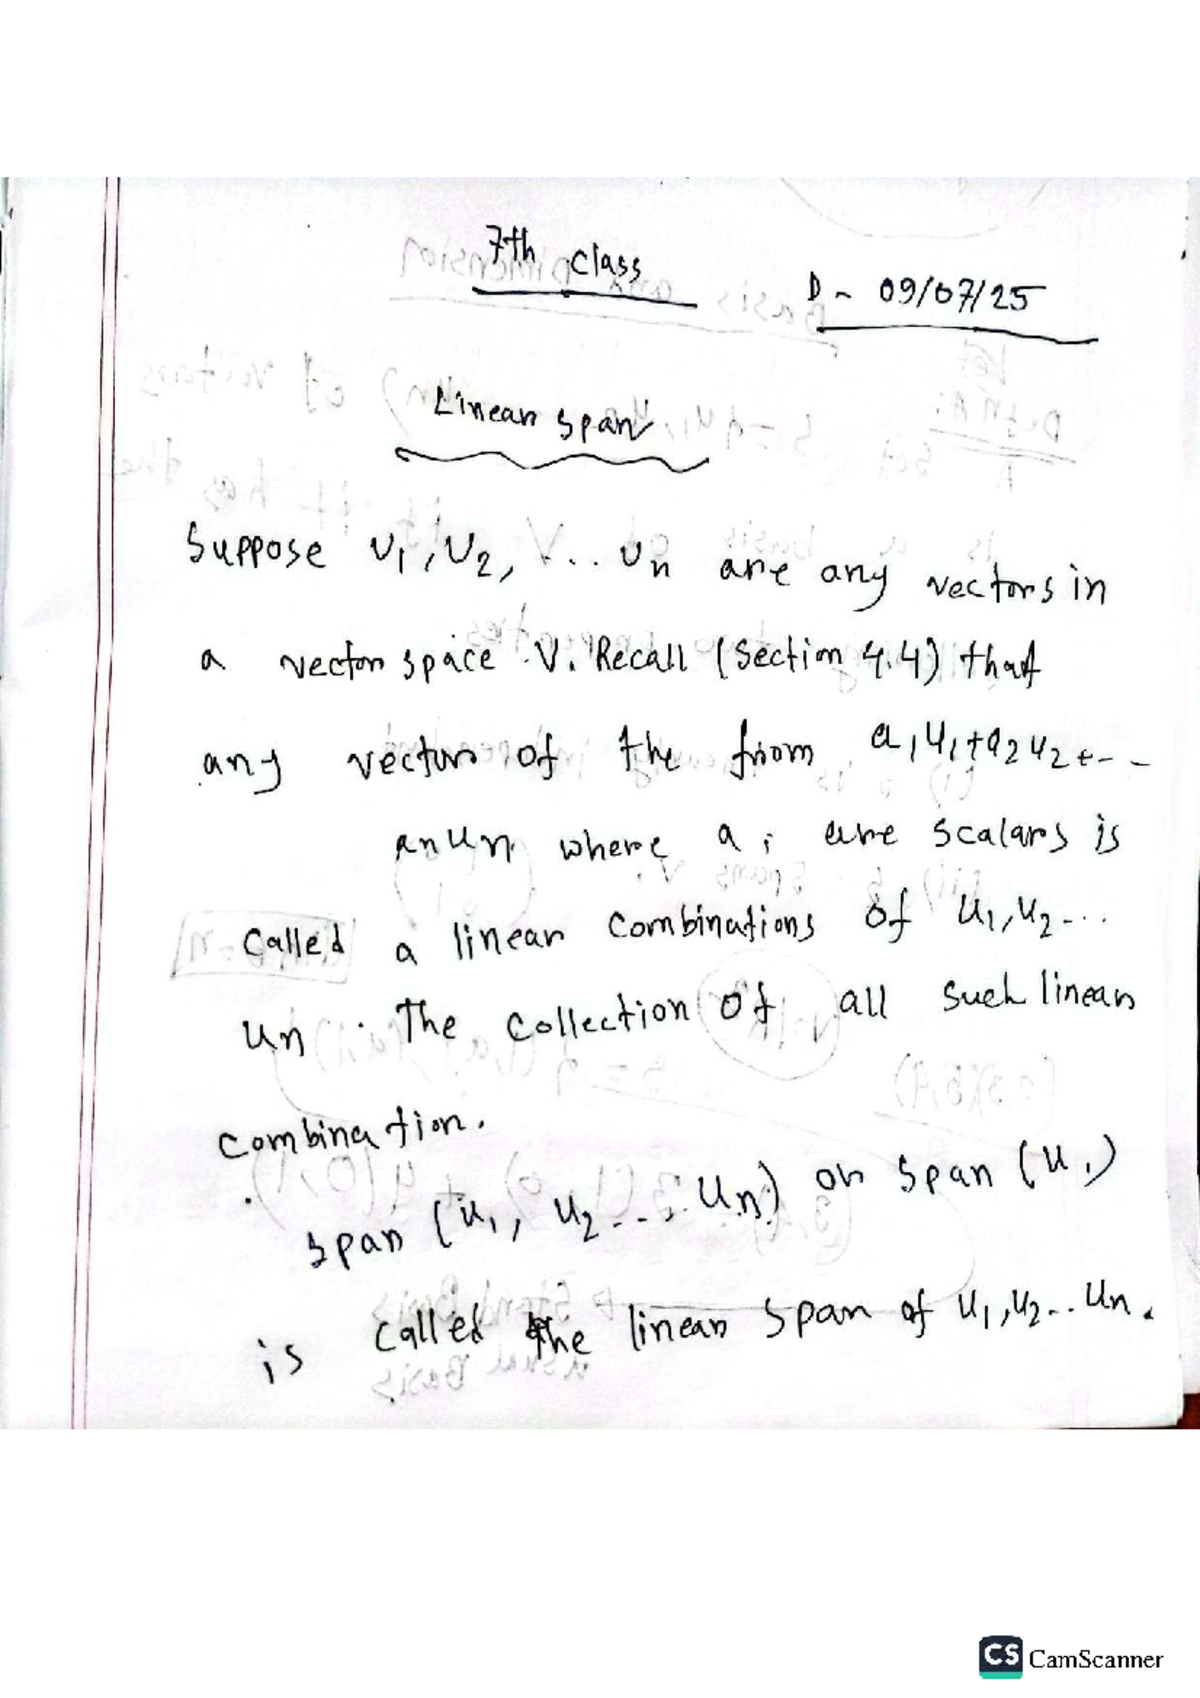 7th class
D - 09/07/25
Linear span
Suppose u1, u2, ... un are any vectors in
a vector space V. Recall (section 4.4) that
any vector of the from a1u1+a2u2+--
anun where ai are scalars is
called a linear combinations of u1, u2...
un. The collection of all such linear
combination.
span (u1, u2.... un) or span (ui)
is called the linear span of u1, u2.. un.
CS CamScanner